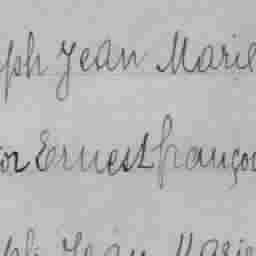 ph Jean Marie
or Ernest françoi
ph Jean Marie